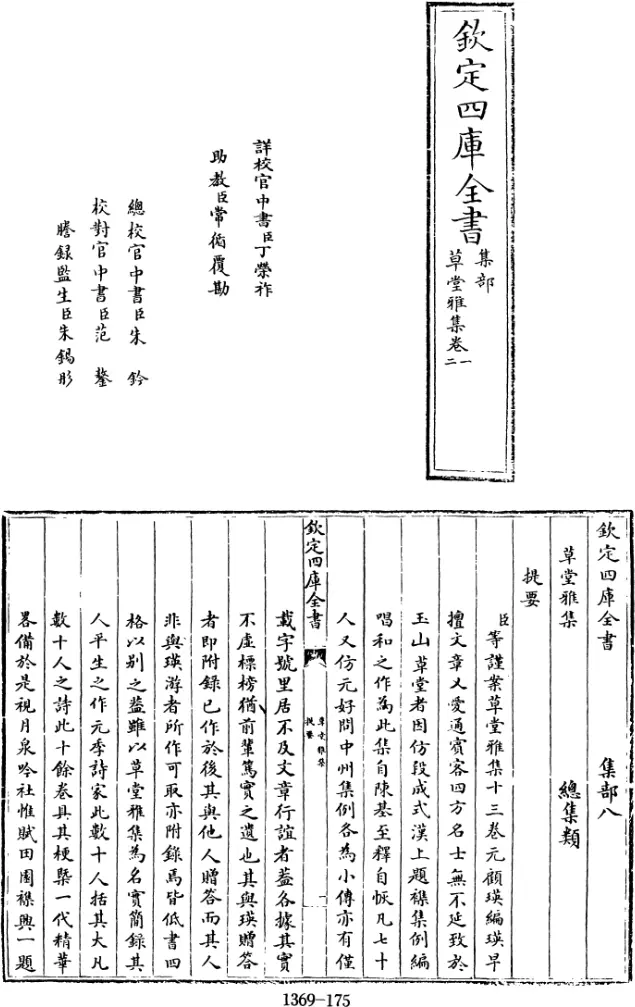 欽定四庫全書
集部
草堂雅集卷一
二
詳校官中書臣丁榮祚
助教臣常循覆勘
總校官中書臣朱鈐
校對官中書臣范鏊
謄錄監生臣朱錫彤
欽定四庫全書 集部八
草堂雅集 總集類
提要
臣等謹案草堂雅集十三卷元顧瑛編瑛早
擅文章又愛通賓客四方名士無不延致於
玉山草堂者因仿段成式漢上題襟集例編
唱和之作為此集自陳基至釋自恢凡七十
人又仿元好問中州集例各為小傳亦有僅
欽定四庫全書
草堂雅集
提要
一
載字號里居不及文章行誼者葢各據其實
不虛標榜猶前輩篤實之遺也其與瑛贈答
者即附錄已作於後其與他人贈答而其人
非與瑛游者所作可取亦附錄焉皆低書四
格以别之葢雖以草堂雅集為名實簡錄其
人平生之作元季詩家此數十人括其大凡
數十人之詩此十餘卷具其梗槩一代精華
畧備於是視月泉吟社惟賦田園襍興一題
1369-175